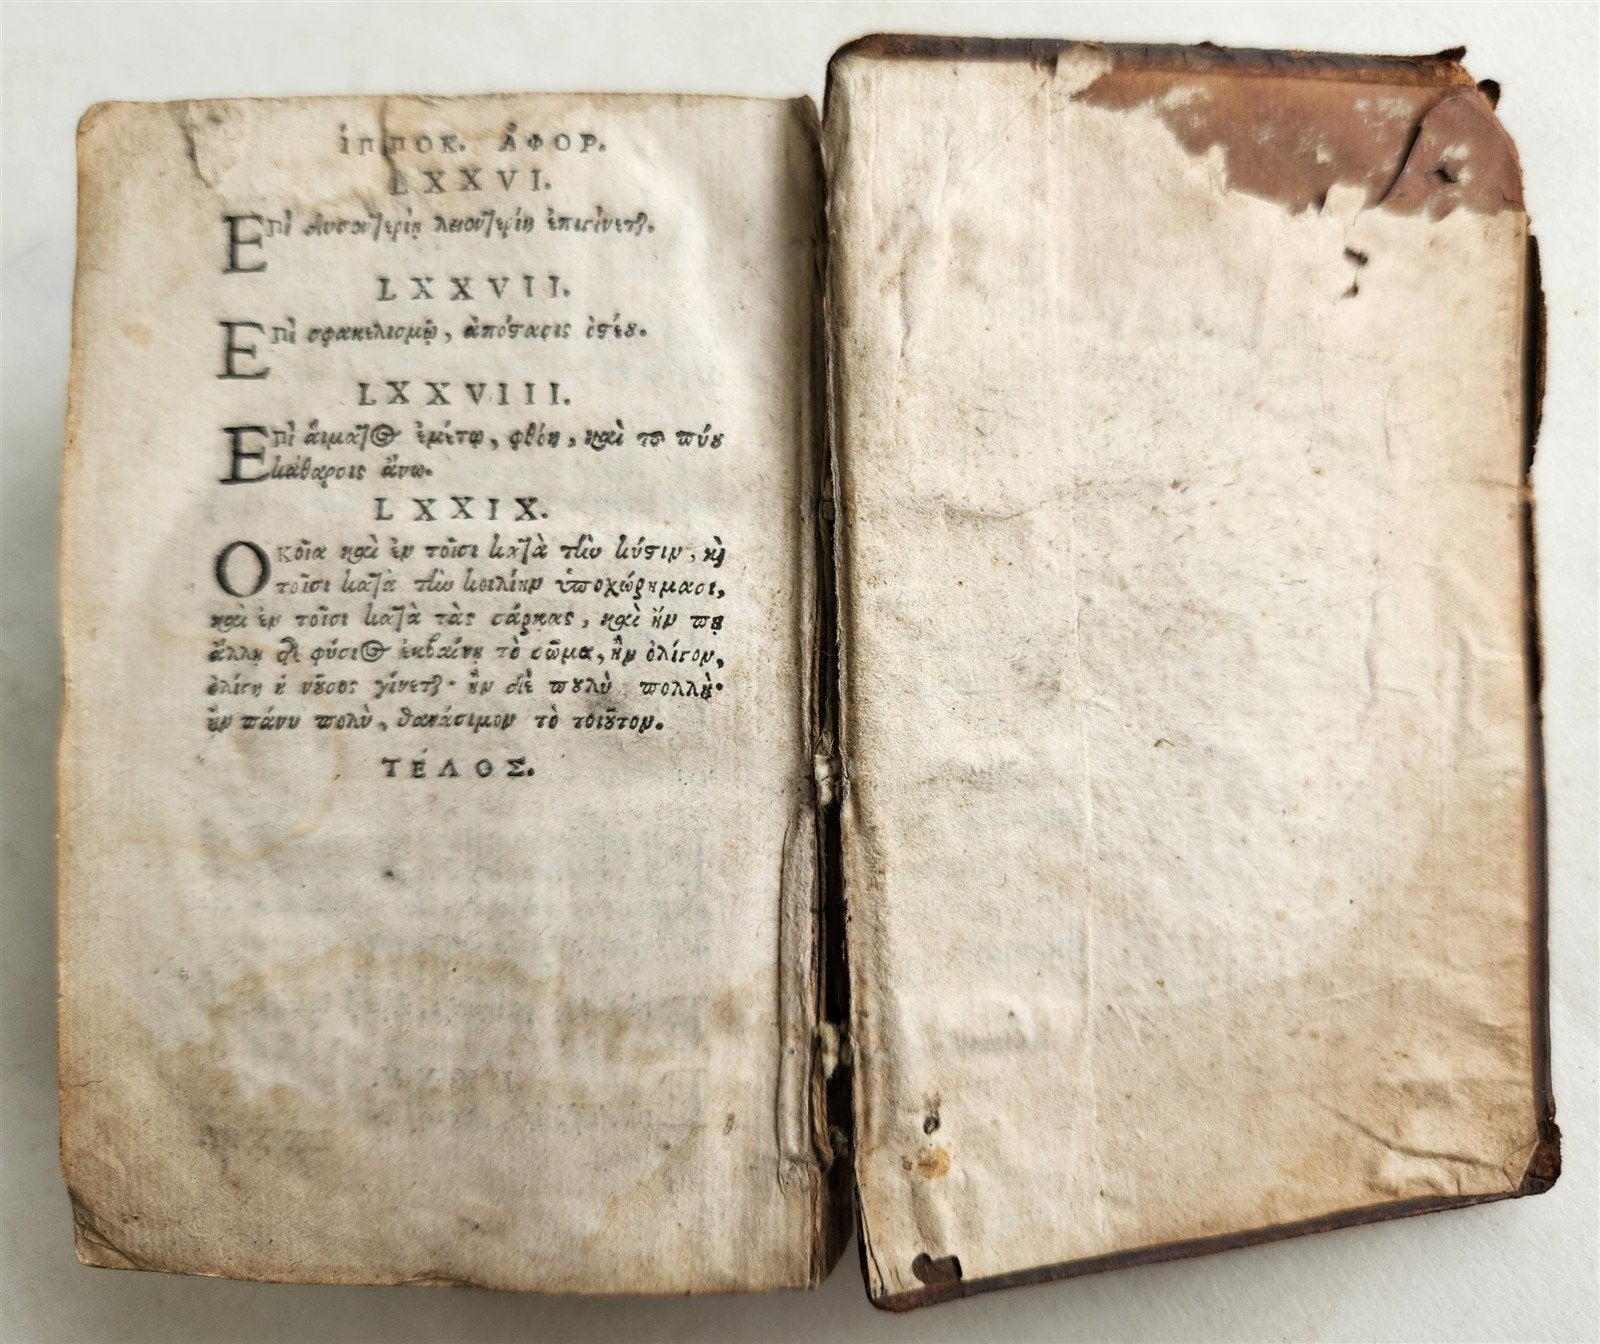 ἱπποκ. ἀφορ.
LXXVI.
Επὶ δυσεντερίῃ λειεντερίη ἐπιγίνεται.
LXXVII.
Επὶ σφακελισμῷ, ἀπόστασις ὀστέου.
LXXVIII.
Επὶ αἵματος ἐμέτῳ, φθόη, καὶ το πύου
κάθαρσις ἄνω.
LXXIX.
Οκοῖα καὶ ἐν τοῖσι κατὰ τὴν κύστιν, καὶ
τοῖσι κατὰ τὴν κοιλίην ὑποχώρημασι,
καὶ ἐν τοῖσι κατὰ τὰς σάρκας, καὶ ἤν που
ἄλλῃ δὲ φύσιος ἐκβαίνῃ τὸ σῶμα, ἢν ὀλίγον,
ὀλίγη ἡ νοῦσος γίνεται· ἢν δὲ πουλὺ πολλὴ·
ἢν πάνυ πολὺ, θανάσιμον τὸ τοιοῦτον.
ΤΕΛΟΣ.